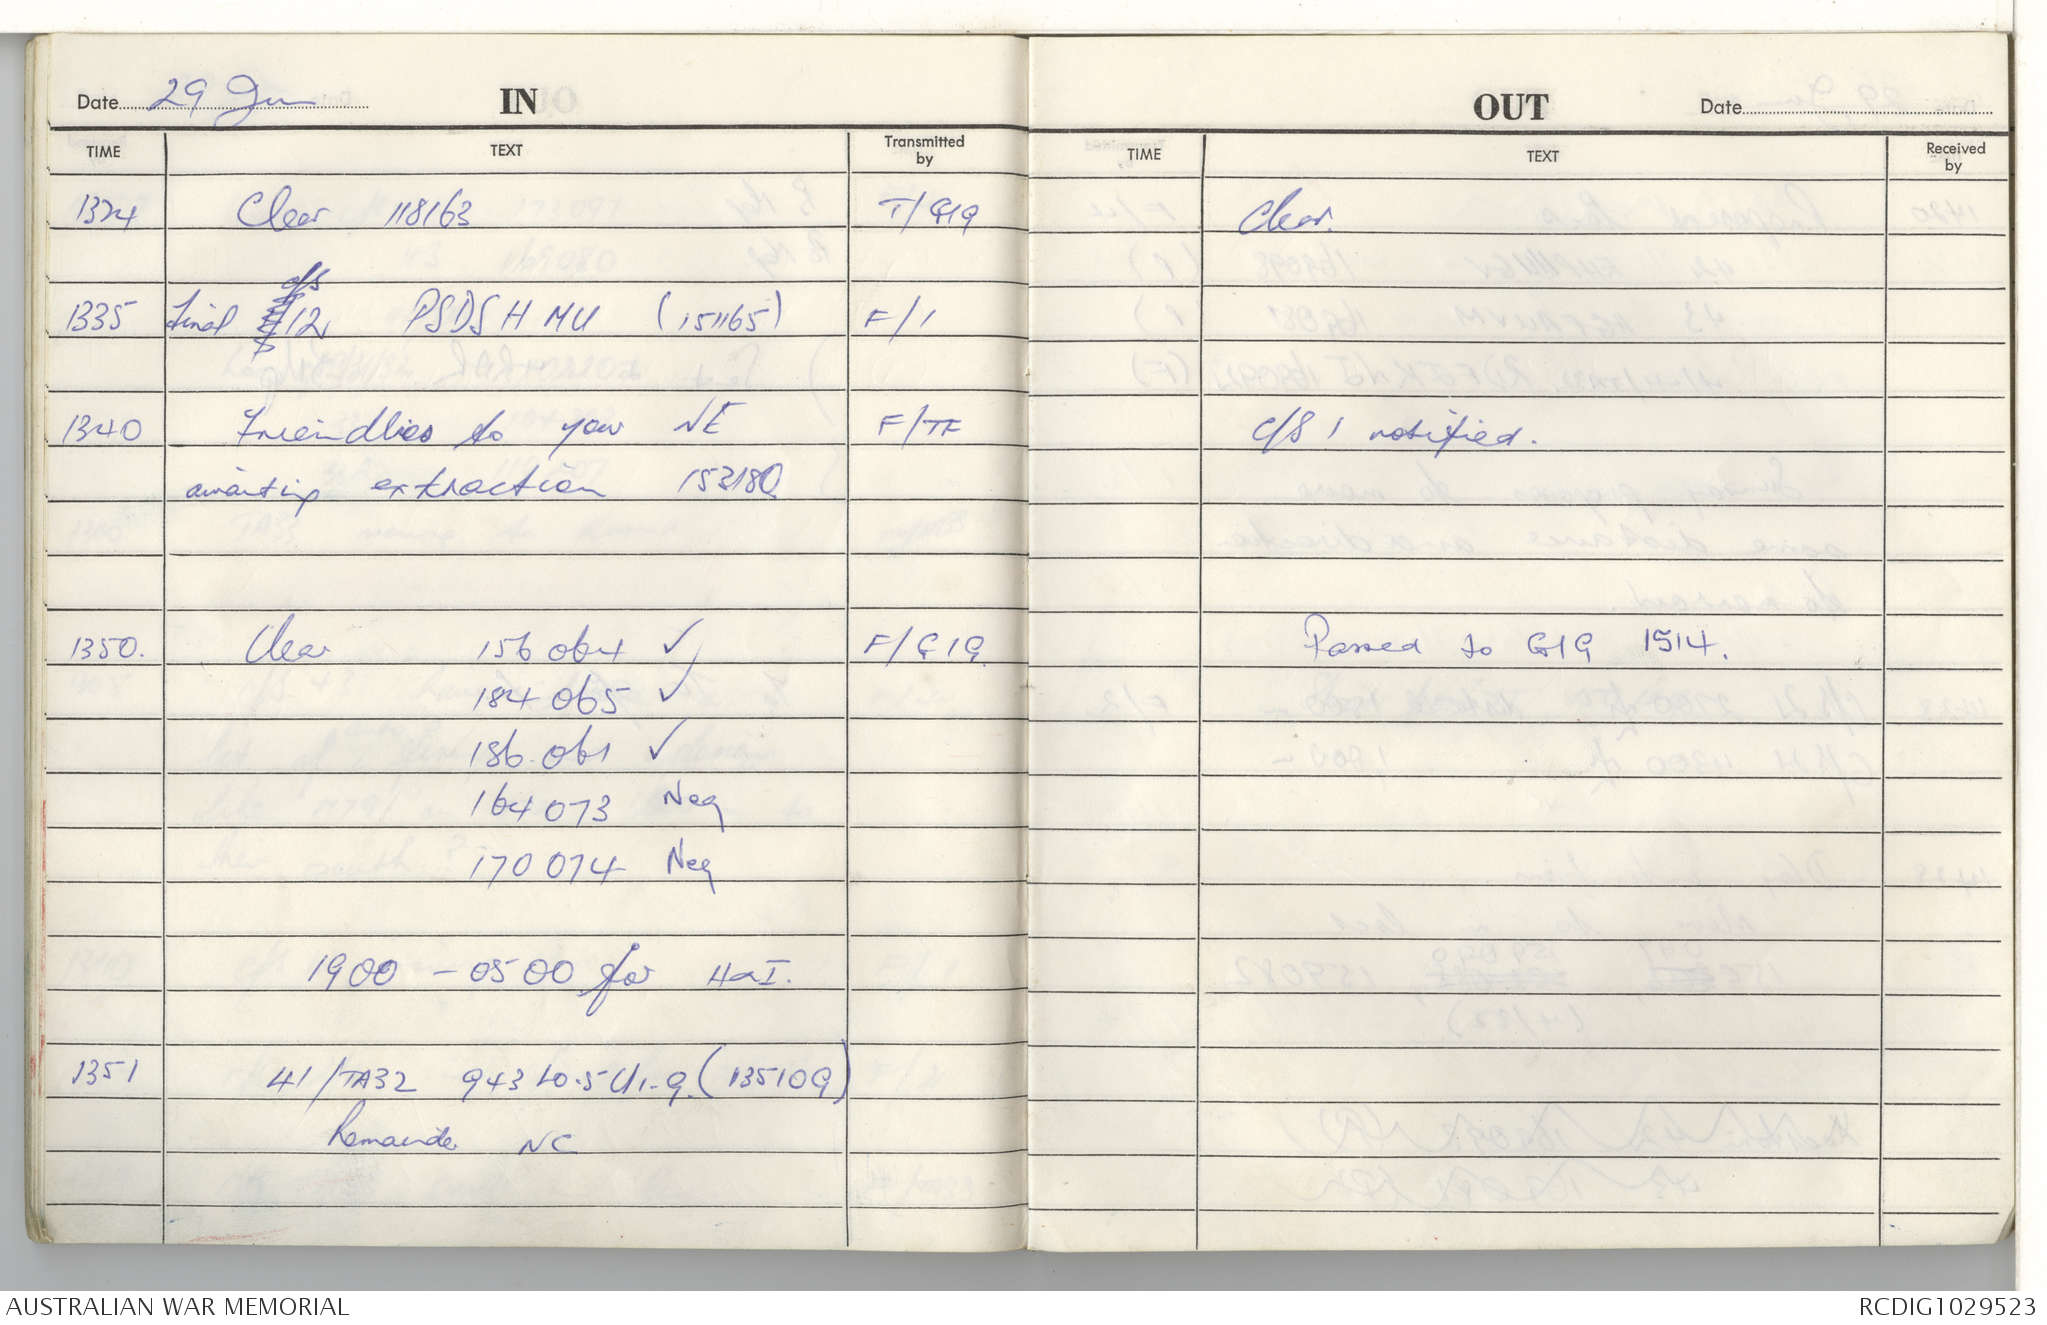 Date 29 Jun IN
TIME TEXT Transmitted by
1324 Clear 118163 T/G1G
c/s
1335 Final 12 PSDSHMU (151165) F/1
1340 Friendlies to your NE F/TF
awaiting extraction 153180
1350. Clear 156064 ✓ F/G1G
184065 ✓
186061 ✓
164073 Neg
170074 Neg
1900 - 0500 for H&I.
1351 41/TA32 943 (135109)
Remainder NC
OUT Date
TIME TEXT Received by
Clear.
C/S 1 notified.
Passed to G1G 1514.
AUSTRALIAN WAR MEMORIAL RCDIG1029523